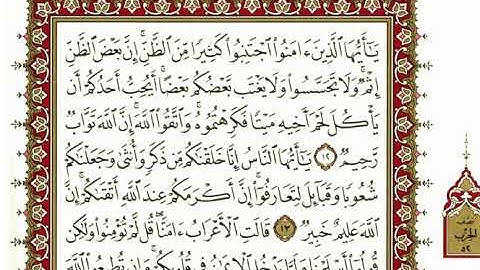 يَـٰٓأَيُّهَا ٱلَّذِينَ ءَامَنُوا۟ ٱجْتَنِبُوا۟ كَثِيرًا مِّنَ ٱلظَّنِّ إِنَّ بَعْضَ ٱلظَّنِّ
إِثْمٌ ۖ وَلَا تَجَسَّسُوا۟ وَلَا يَغْتَب بَّعْضُكُم بَعْضًا ۚ أَيُحِبُّ أَحَدُكُمْ أَن
يَأْكُلَ لَحْمَ أَخِيهِ مَيْتًا فَكَرِهْتُمُوهُ ۚ وَٱتَّقُوا۟ ٱللَّهَ ۚ إِنَّ ٱللَّهَ تَوَّابٌ
رَّحِيمٌ ١٢ يَـٰٓأَيُّهَا ٱلنَّاسُ إِنَّا خَلَقْنَـٰكُم مِّن ذَكَرٍ وَأُنثَىٰ وَجَعَلْنَـٰكُمْ
شُعُوبًا وَقَبَآئِلَ لِتَعَارَفُوٓا۟ ۚ إِنَّ أَكْرَمَكُمْ عِندَ ٱللَّهِ أَتْقَىٰكُمْ ۚ إِنَّ
ٱللَّهَ عَلِيمٌ خَبِيرٌ ١٣ ۞ قَالَتِ ٱلْأَعْرَابُ ءَامَنَّا ۖ قُل لَّمْ تُؤْمِنُوا۟ وَلَـٰكِن
الحزب
٥٢